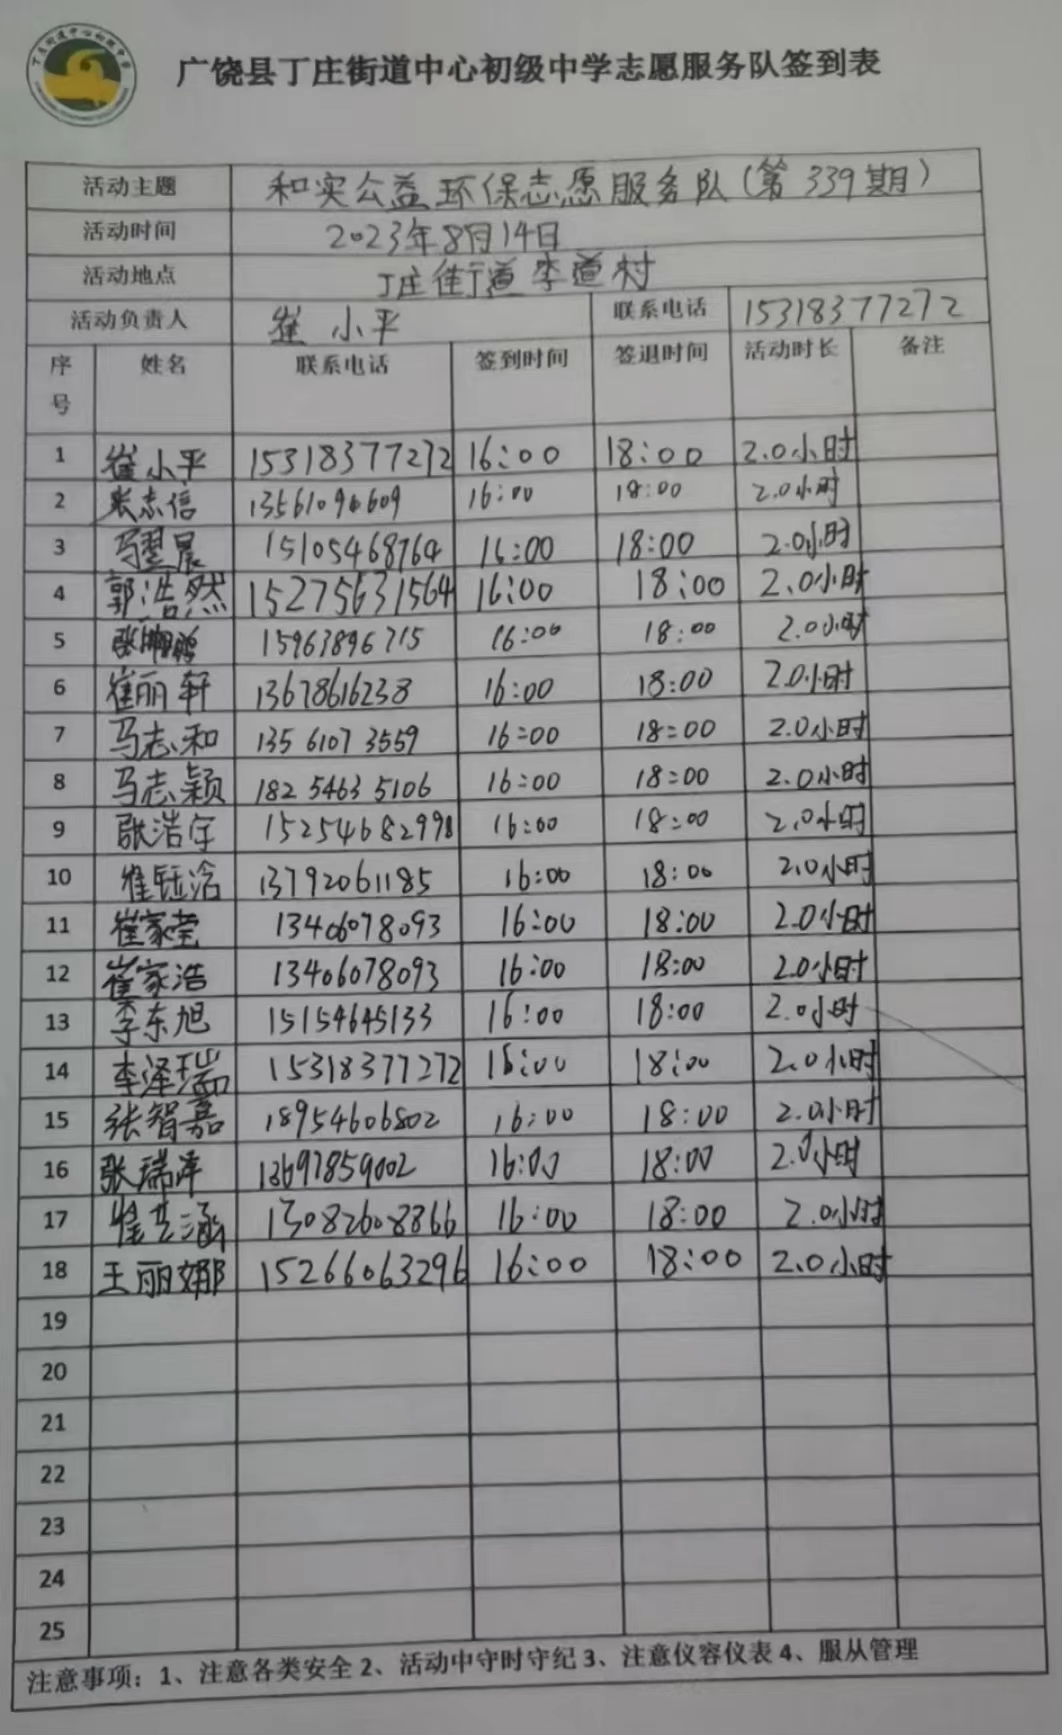 广饶县丁庄街道中心初级中学志愿服务队签到表
活动主题 和实公益环保志愿服务队（第339期）
活动时间 2023年8月14日
活动地点 丁庄街道李道村
活动负责人 崔小平 联系电话 15318377272
序号 姓名 联系电话 签到时间 签退时间 活动时长 备注
1 崔小平 15318377272 16:00 18:00 2.0小时
2 张志信 13561096609 16:00 18:00 2.0小时
3 马翌晨 15105468764 16:00 18:00 2.0小时
4 郭浩然 15275631564 16:00 18:00 2.0小时
5 15963896715 16:00 18:00 2.0小时
6 崔丽轩 13678616238 16:00 18:00 2.0小时
7 马志和 135 6107 3559 16:00 18:00 2.0小时
8 马志颖 182 5463 5106 16:00 18:00 2.0小时
9 张浩宇 15254682998 16:00 18:00 2.0小时
10 崔钰涵 13792061185 16:00 18:00 2.0小时
11 崔家莹 13406078093 16:00 18:00 2.0小时
12 崔家浩 13406078093 16:00 18:00 2.0小时
13 李东旭 15154645133 16:00 18:00 2.0小时
14 李泽瑞 15318377272 16:00 18:00 2.0小时
15 张智嘉 18954606802 16:00 18:00 2.0小时
16 张瑞泽 13697859002 16:00 18:00 2.0小时
17 13082608866 16:00 18:00 2.0小时
18 王丽娜 15266063296 16:00 18:00 2.0小时
19
20
21
22
23
24
25
注意事项：1、注意各类安全 2、活动中守时守纪 3、注意仪容仪表 4、服从管理